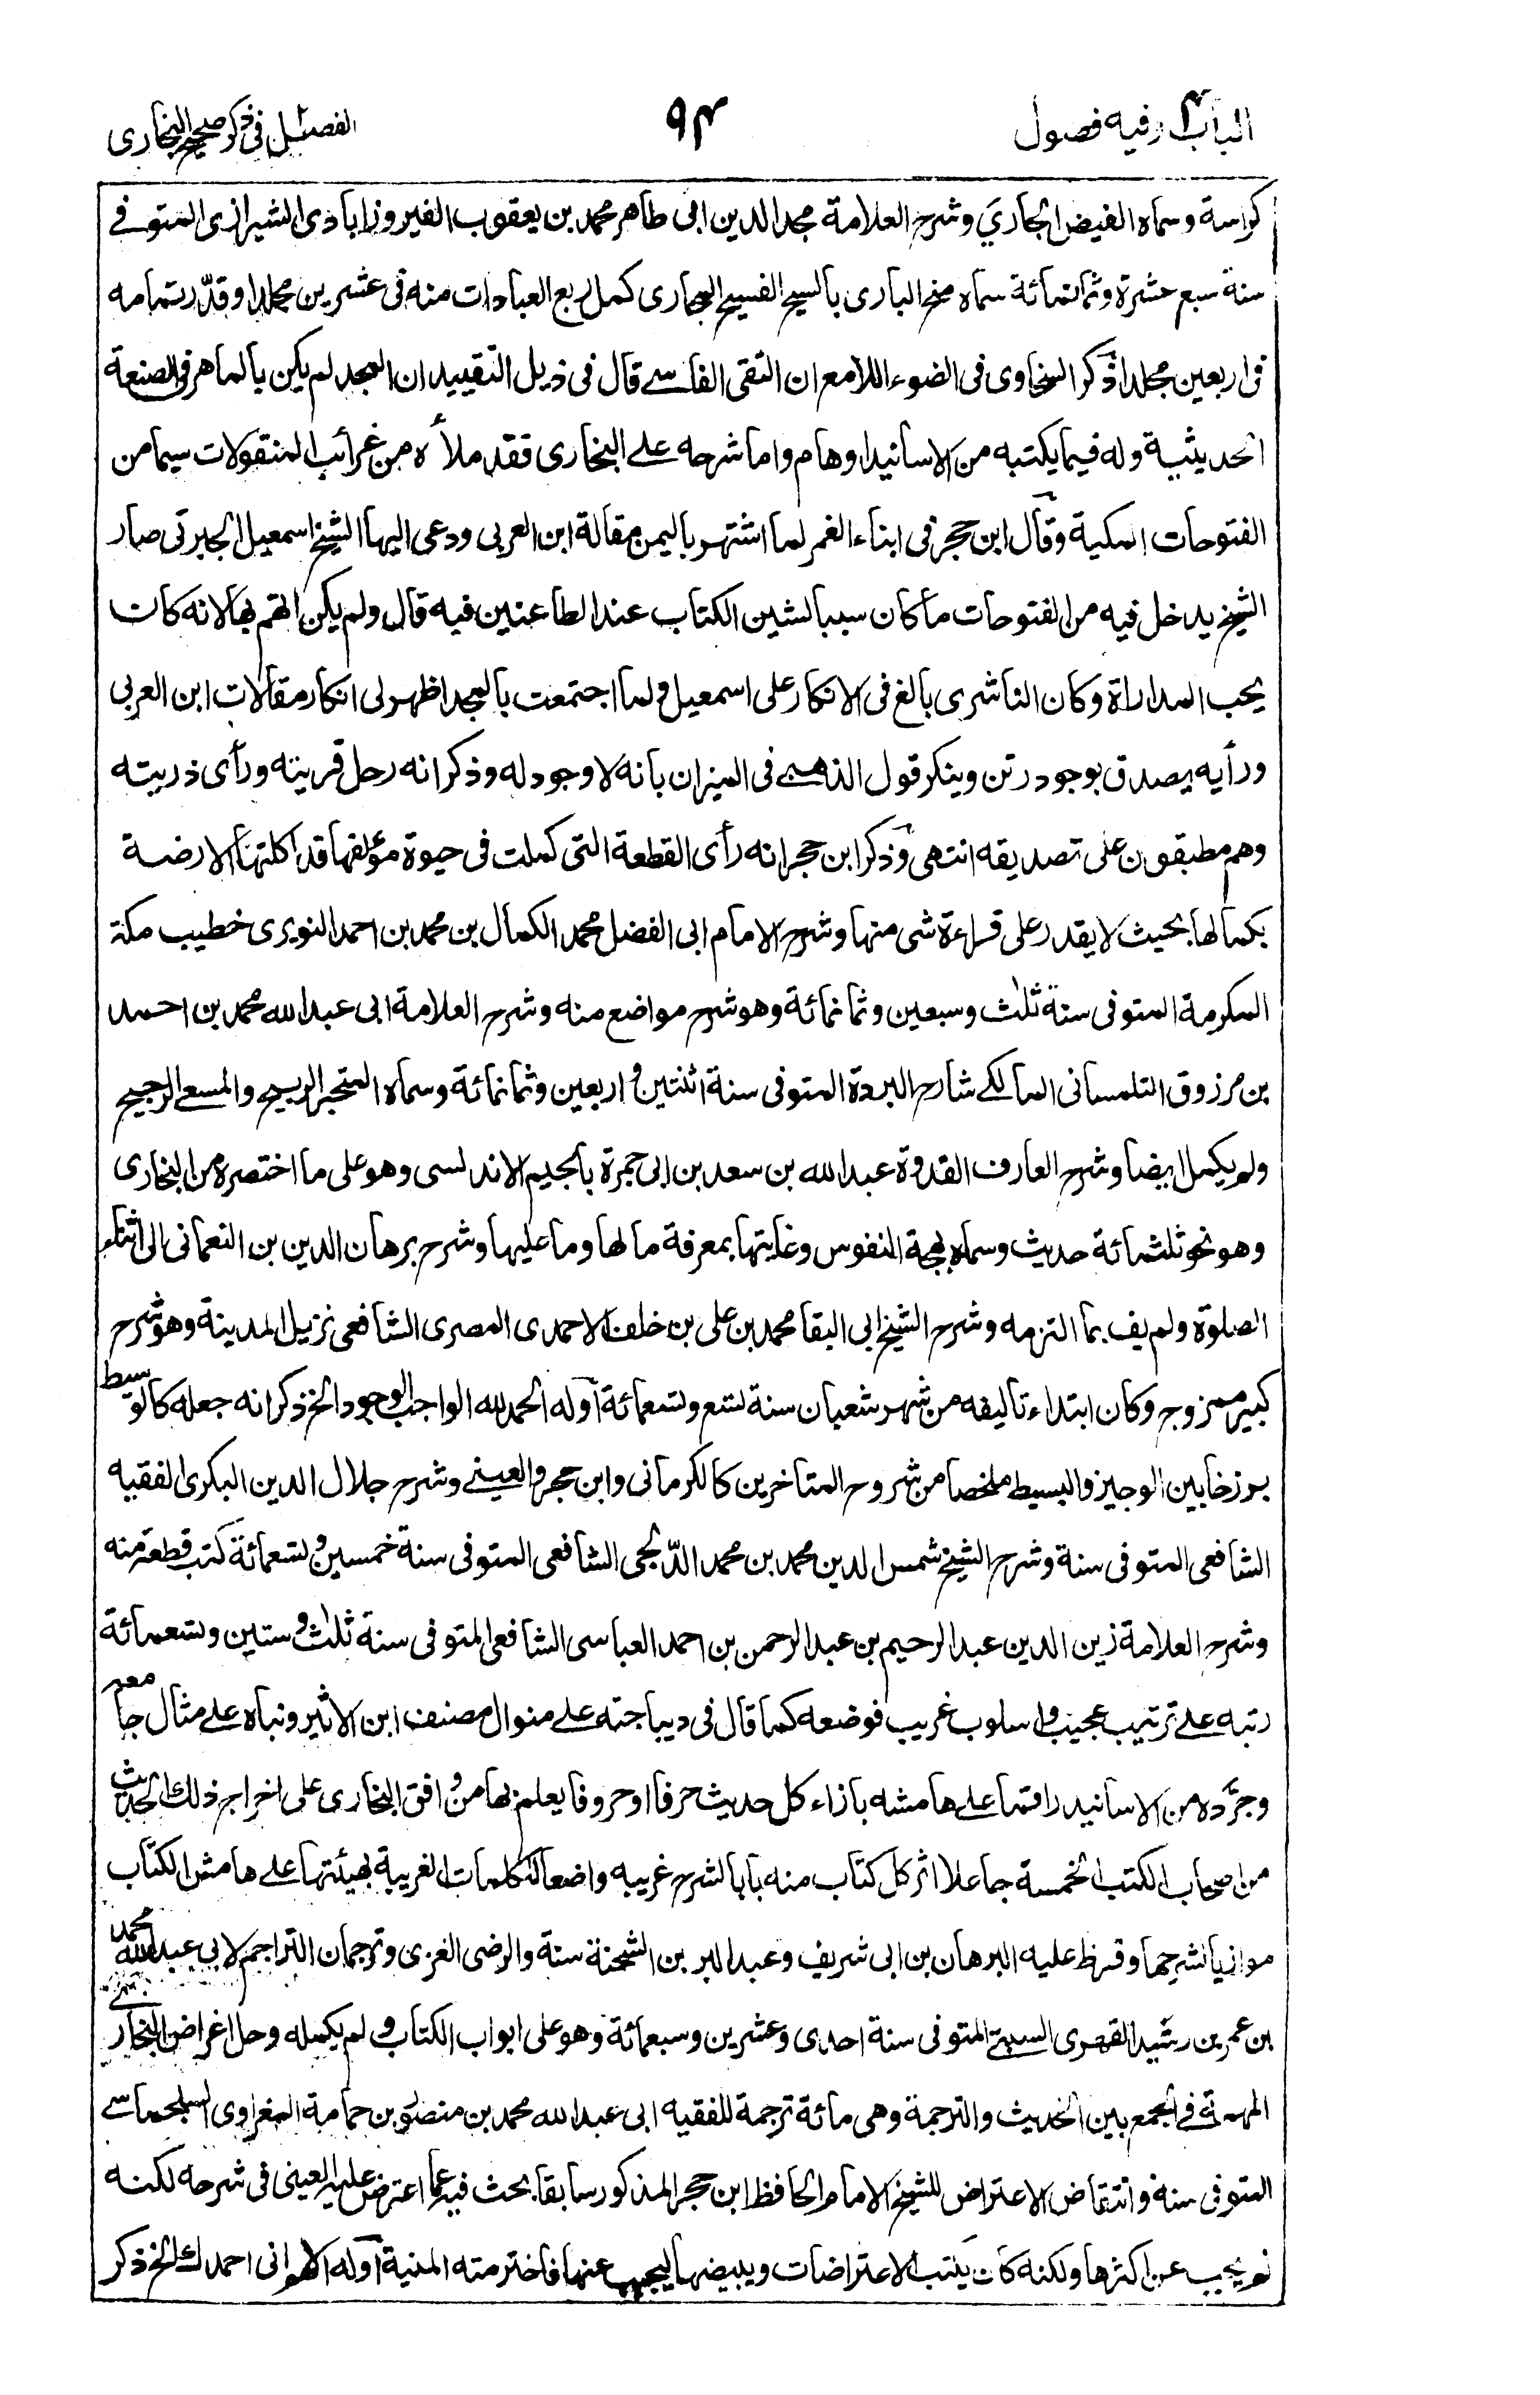 الباب ٤ وفيه فصول
٩٤
الفصل ٢ فى ذكر صحيح البخارى
كراسة وسماه الفيض الجاري وشرح العلامة مجد الدين ابى طاهر محمد بن يعقوب الفيروزابادى الشيرازى المتوفے
سنة سبع عشرة وثمانمائة سماه منح البارى بالسيح الفسيح المجارى كمل ربع العبادات منه فى عشرين مجلدا وقدّر تمامه
فى اربعين مجلدا ذكر السخاوى فى الضوء اللامع ان التقى الفاسے قال فى ذيل التقييد ان المجد لم يكن بالماهر فى الصنعة
الحديثية وله فيما يكتبه من الاسانيد اوهام واما شرحه علے البخارى فقد ملأه من غرائب المنقولات سيما من
الفتوحات المكية وقال ابن حجر فى ابناء الغمر لما اشتهر باليمن مقالة ابن العربى ودعى اليها الشيخ اسمعيل الجبرتى صار
الشيخ يدخل فيه من الفتوحات ما كان سببا لشين الكتاب عند الطاعنين فيه قال ولم يكن اتهم بها لانه كان
يحب المداراة وكان الناشرى بالغ فى الانكار على اسمعيل ولما اجتمعت بالمجد اظهر لى انكار مقالات ابن العربى
ورأيه يصدق بوجود رتن وينكر قول الذهبے فى الميزان بانه لا وجود له وذكر انه رحل قريته ورأى ذريته
وهم مطبقون على تصديقه انتهى وذكر ابن حجر انه رأى القطعة التى كملت فى حيوة مؤلفها قد اكلتها الارضة
بكمالها بحيث لا يقدر على قراءة شى منها وشرح الامام ابى الفضل محمد الكمال بن محمد بن احمد النويرى خطيب مكة
المكرمة المتوفى سنة ثلث وسبعين وثمانمائة وهو شرح مواضع منه وشرح العلامة ابى عبد الله محمد بن احمد
بن مرزوق التلمسانى المالكے شارح البردة المتوفى سنة اثنتين و اربعين وثمانمائة وسماه المتجر الربيح والمسعے الرجيح
ولم يكمل ايضا وشرح العارف القدوة عبد الله بن سعد بن ابى جمرة بالجيم الاندلسى وهو على ما اختصره من البخارى
وهو نحو ثلثمائة حديث وسماه بهجة النفوس وغايتها بمعرفة ما لها وما عليها وشرح برهان الدين بن النعمانى الى اثناء
الصلوة ولم يف بما التزمه وشرح الشيخ ابى البقا محمد بن على بن خلف الاحمدى المصرى الشافعى نزيل المدينة وهو شرح
كبير ممزوج وكان ابتداء تاليفه من شهر شعبان سنة تسع وتسعمائة اوله الحمد لله الواجب الوجود الخ ذكر انه جعله كالوسيط
برزخا بين الوجيز والبسيط ملخصا من شروح المتاخرين كالكرمانى وابن حجر والعينے وشرح جلال الدين البكرى الفقيه
الشافعى المتوفى سنة وشرح الشيخ شمس الدين محمد بن محمد الدّلجى الشافعى المتوفى سنة خمسين وتسعمائة كتب قطعة منه
وشرح العلامة زين الدين عبد الرحيم بن عبد الرحمن بن احمد العباسى الشافعى المتوفى سنة ثلث وستين وتسعمائة
رتبه علے ترتيب عجيب واسلوب غريب فوضعه كما قال فى ديباجته علے منوال مصنف ابن الاثير وبناه علے مثال جامعه
وجرّده من الاسانيد راقما علے هامشه بازاء كل حديث حرفا او حروفا يعلم بها من وافق البخارى على اخراج ذلك الحديث
من اصحاب الكتب الخمسة جاعلا اثر كل كتاب منه بابا لشرح غريبه واضعا الكلمات الغريبة بهيئتها علے هامش الكتاب
موازيا لشرحها وقرظ عليه البرهان بن ابى شريف وعبد البر بن الشحنة سنة والرضى الغزى وترجمان التراجم لابى عبد الله محمد
بن عمر بن رشيد الفهرى السبتے المتوفى سنة احدى وعشرين وسبعمائة وهو على ابواب الكتاب و لم يكمله وحل اغراض البخارى
المبهمة فے الجمع بين الحديث والترجمة وهى مائة ترجمة للفقيه ابى عبد الله محمد بن منصور بن حمامة المغراوى السلجماسے
المتوفى سنة وانتقاض الاعتراض للشيخ الامام الحافظ ابن حجر المذكور سابقا بحث فيه عما اعترض عليه العينى فى شرحه لكنه
لم يجب عن اكثرها ولكنه كان يكتب الاعتراضات ويبيضها ليجيب عنها فاخترمته المنية اوله اللهم انى احمدك الخ ذكر